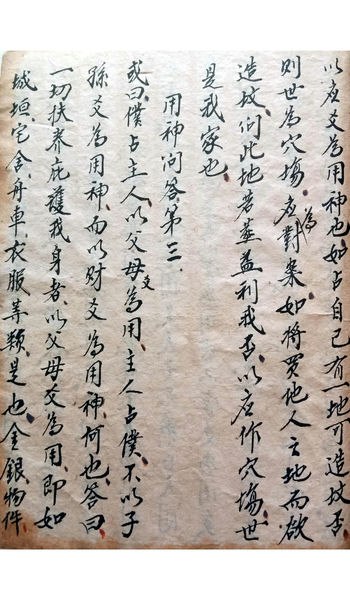 以应爻為用神也如占自己有一地可造坟否
則世為穴塲应為對案如將買他人之地而欲
造坟问此地若葬益利我否以应作穴塲世
是我家也
用神问答第三
或曰僕占主人以父母爻為用主人占僕不以子
孫爻為用神而以财爻為用神何也答曰
一切扶养庇護我身者以父母爻為用即如
城垣宅舍舟車衣服等類是也金銀物件